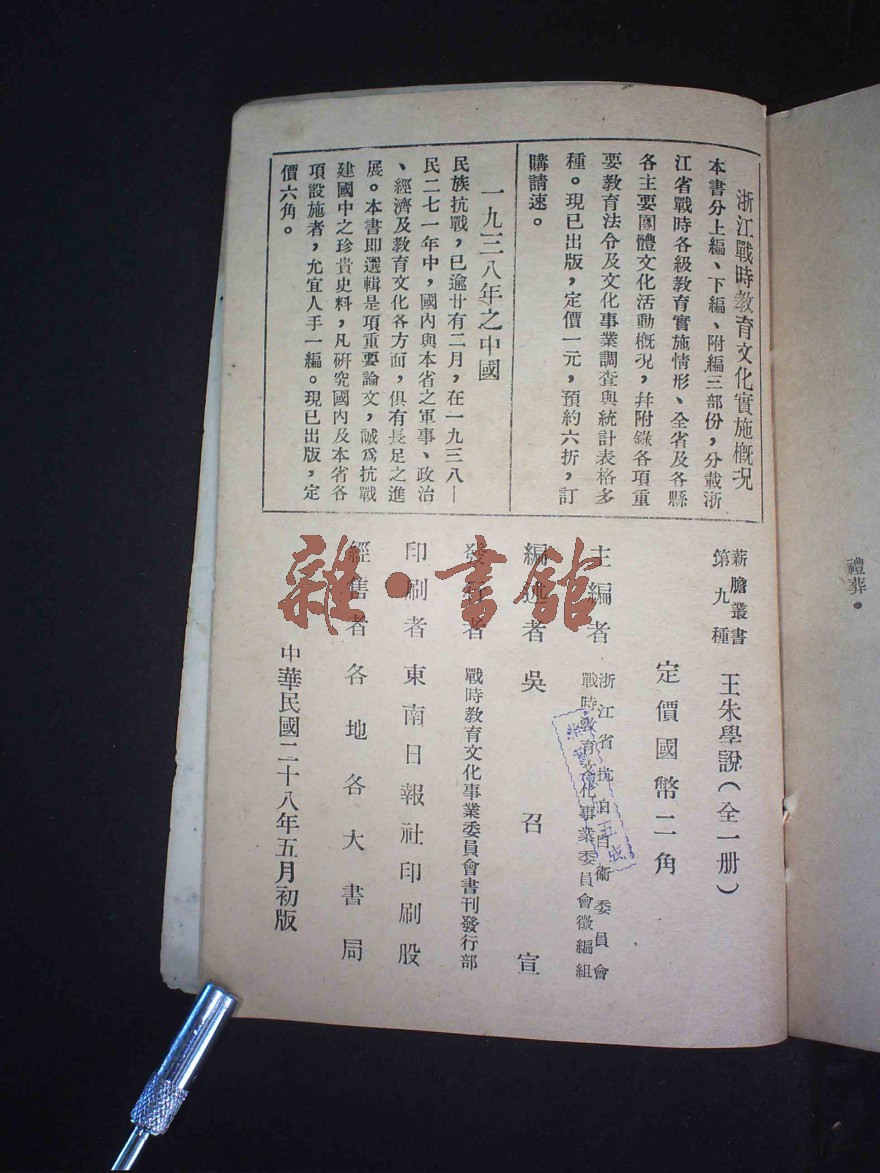 浙江戰時教育文化實施槪況
本書分上編、下編、附編三部份，分載浙
江省戰時各級教育實施情形、全省及各縣
各主要團體文化活動槪況，幷附錄各項重
要教育法令及文化事業調查與統計表格多
種。現已出版，定價一元，預約六折，訂
購請速。
一九三八年之中國
民族抗戰，已逾廿有二月，在一九三八—
民二七一年中，國內與本省之軍事、政治
、經濟及教育文化各方面，俱有長足之進
展。本書即選輯是項重要論文，誠爲抗戰
建國中之珍貴史料，凡硏究國內及本省各
項設施者，尤宜人手一編。現已出版，定
價六角。
薪膽叢書
第九種
王朱學說（全一册）
定價國幣二角
主編者
浙江省抗日自衞委員會
戰時教育文化事業委員會徵編組
編述者 吳召宣
發行者 戰時教育文化事業委員會書刊發行部
印刷者 東南日報社印刷股
經售者 各地各大書局
中華民國二十八年五月初版
禮葬。
雜·書館